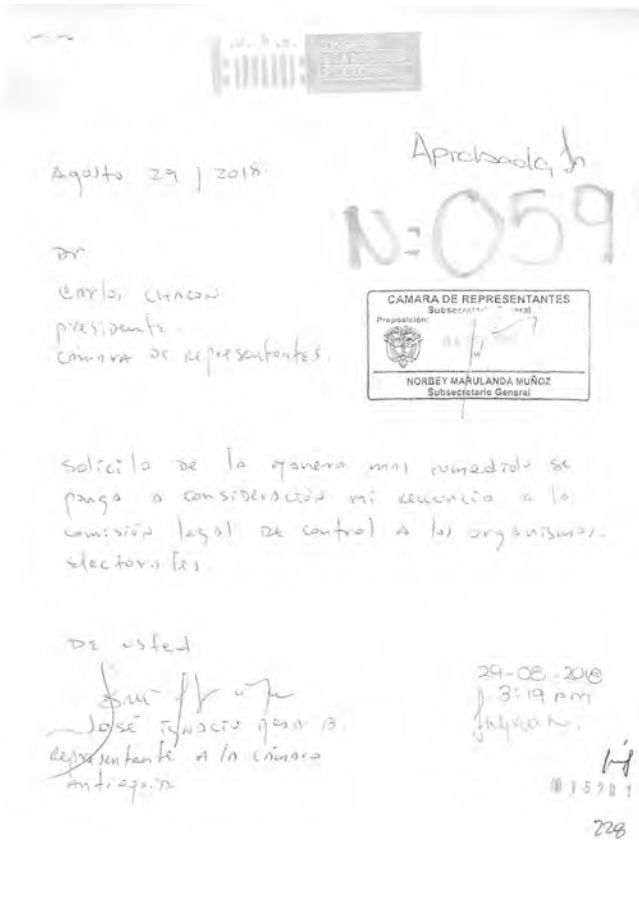 Agosto 29 | 2018.
Aprobada
N: 059
Dr
Carlos CHACON
presidente
camara De Representantes.
CAMARA DE REPRESENTANTES
Subsecretaria General
Proposición:
NORBEY MARULANDA MUÑOZ
Subsecretario General
solicito De la manera mas comedida se
ponga a consideración mi renuncia a la
comisión legal De control A los organismos
electorales
De usted
José Ignacio Mesa B.
Representante A la cámara
Antioquia
29-08-2018
3:19 pm
228